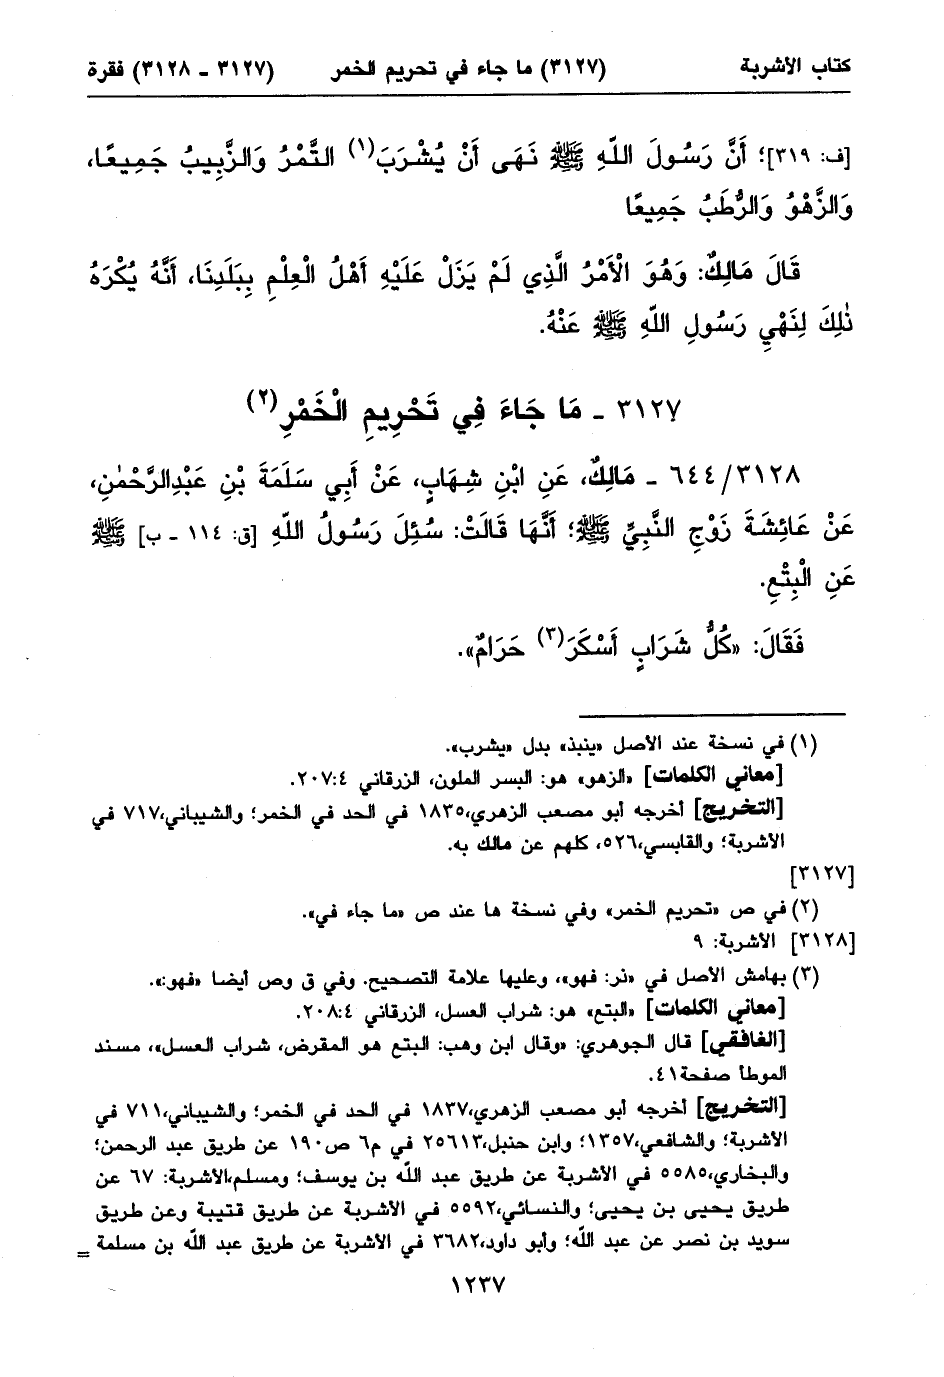 كتاب الأشربة (٣١٢٧) ما جاء في تحريم الخمر (٣١٢٧ ـ ٣١٢٨) فقرة
[ف: ٣١٩]؛ أَنَّ رَسُولَ اللّهِ ﷺ نَهَى أَنْ يُشْرَبَ(١) التَّمْرُ وَالزَّبِيبُ جَمِيعًا،
وَالزَّهْوُ وَالرُّطَبُ جَمِيعًا
قَالَ مَالِكٌ: وَهُوَ الْأَمْرُ الَّذِي لَمْ يَزَلْ عَلَيْهِ أَهْلُ الْعِلْمِ بِبَلَدِنَا، أَنَّهُ يُكْرَهُ
ذٰلِكَ لِنَهْيِ رَسُولِ اللّهِ ﷺ عَنْهُ.
٣١٢٧ ـ مَا جَاءَ فِي تَحْرِيمِ الْخَمْرِ(٢)
٦٤٤/٣١٢٨ ـ مَالِكٌ، عَنِ ابْنِ شِهَابٍ، عَنْ أَبِي سَلَمَةَ بْنِ عَبْدِالرَّحْمٰنِ،
عَنْ عَائِشَةَ زَوْجِ النَّبِيِّ ﷺ؛ أَنَّهَا قَالَتْ: سُئِلَ رَسُولُ اللّهِ [ق: ١١٤ ـ ب] ﷺ
عَنِ الْبِتْعِ.
فَقَالَ: «كُلُّ شَرَابٍ أَسْكَرَ(٣) حَرَامٌ».
(١) في نسخة عند الأصل «ينبذ» بدل «يشرب».
[معاني الكلمات] «الزهو» هو: البسر الملون، الزرقاني ٢٠٧:٤.
[التخريج] أخرجه أبو مصعب الزهري،١٨٣٥ في الحد في الخمر؛ والشيباني،٧١٧ في
الأشربة؛ والقابسي،٥٢٦، كلهم عن مالك به.
[٣١٢٧]
(٢) في ص «تحريم الخمر» وفي نسخة ها عند ص «ما جاء في».
[٣١٢٨] الأشربة: ٩
(٣) بهامش الأصل في «نر: فهو»، وعليها علامة التصحيح. وفي ق وص أيضا «فهو:».
[معاني الكلمات] «البتع» هو: شراب العسل، الزرقاني ٢٠٨:٤.
[الغافقي] قال الجوهري: «وقال ابن وهب: البتع هو المقرض، شراب العسل»، مسند
الموطأ صفحة٤١.
[التخريج] أخرجه أبو مصعب الزهري،١٨٣٧ في الحد في الخمر؛ والشيباني،٧١١ في
الأشربة؛ والشافعي،١٣٥٧؛ وابن حنبل،٢٥٦١٣ في م٦ ص١٩٠ عن طريق عبد الرحمن؛
والبخاري،٥٥٨٥ في الأشربة عن طريق عبد اللّه بن يوسف؛ ومسلم،الأشربة: ٦٧ عن
طريق يحيى بن يحيى؛ والنسائي،٥٥٩٢ في الأشربة عن طريق قتيبة وعن طريق
سويد بن نصر عن عبد اللّه؛ وأبو داود،٣٦٨٢ في الأشربة عن طريق عبد اللّه بن مسلمة =
١٢٣٧